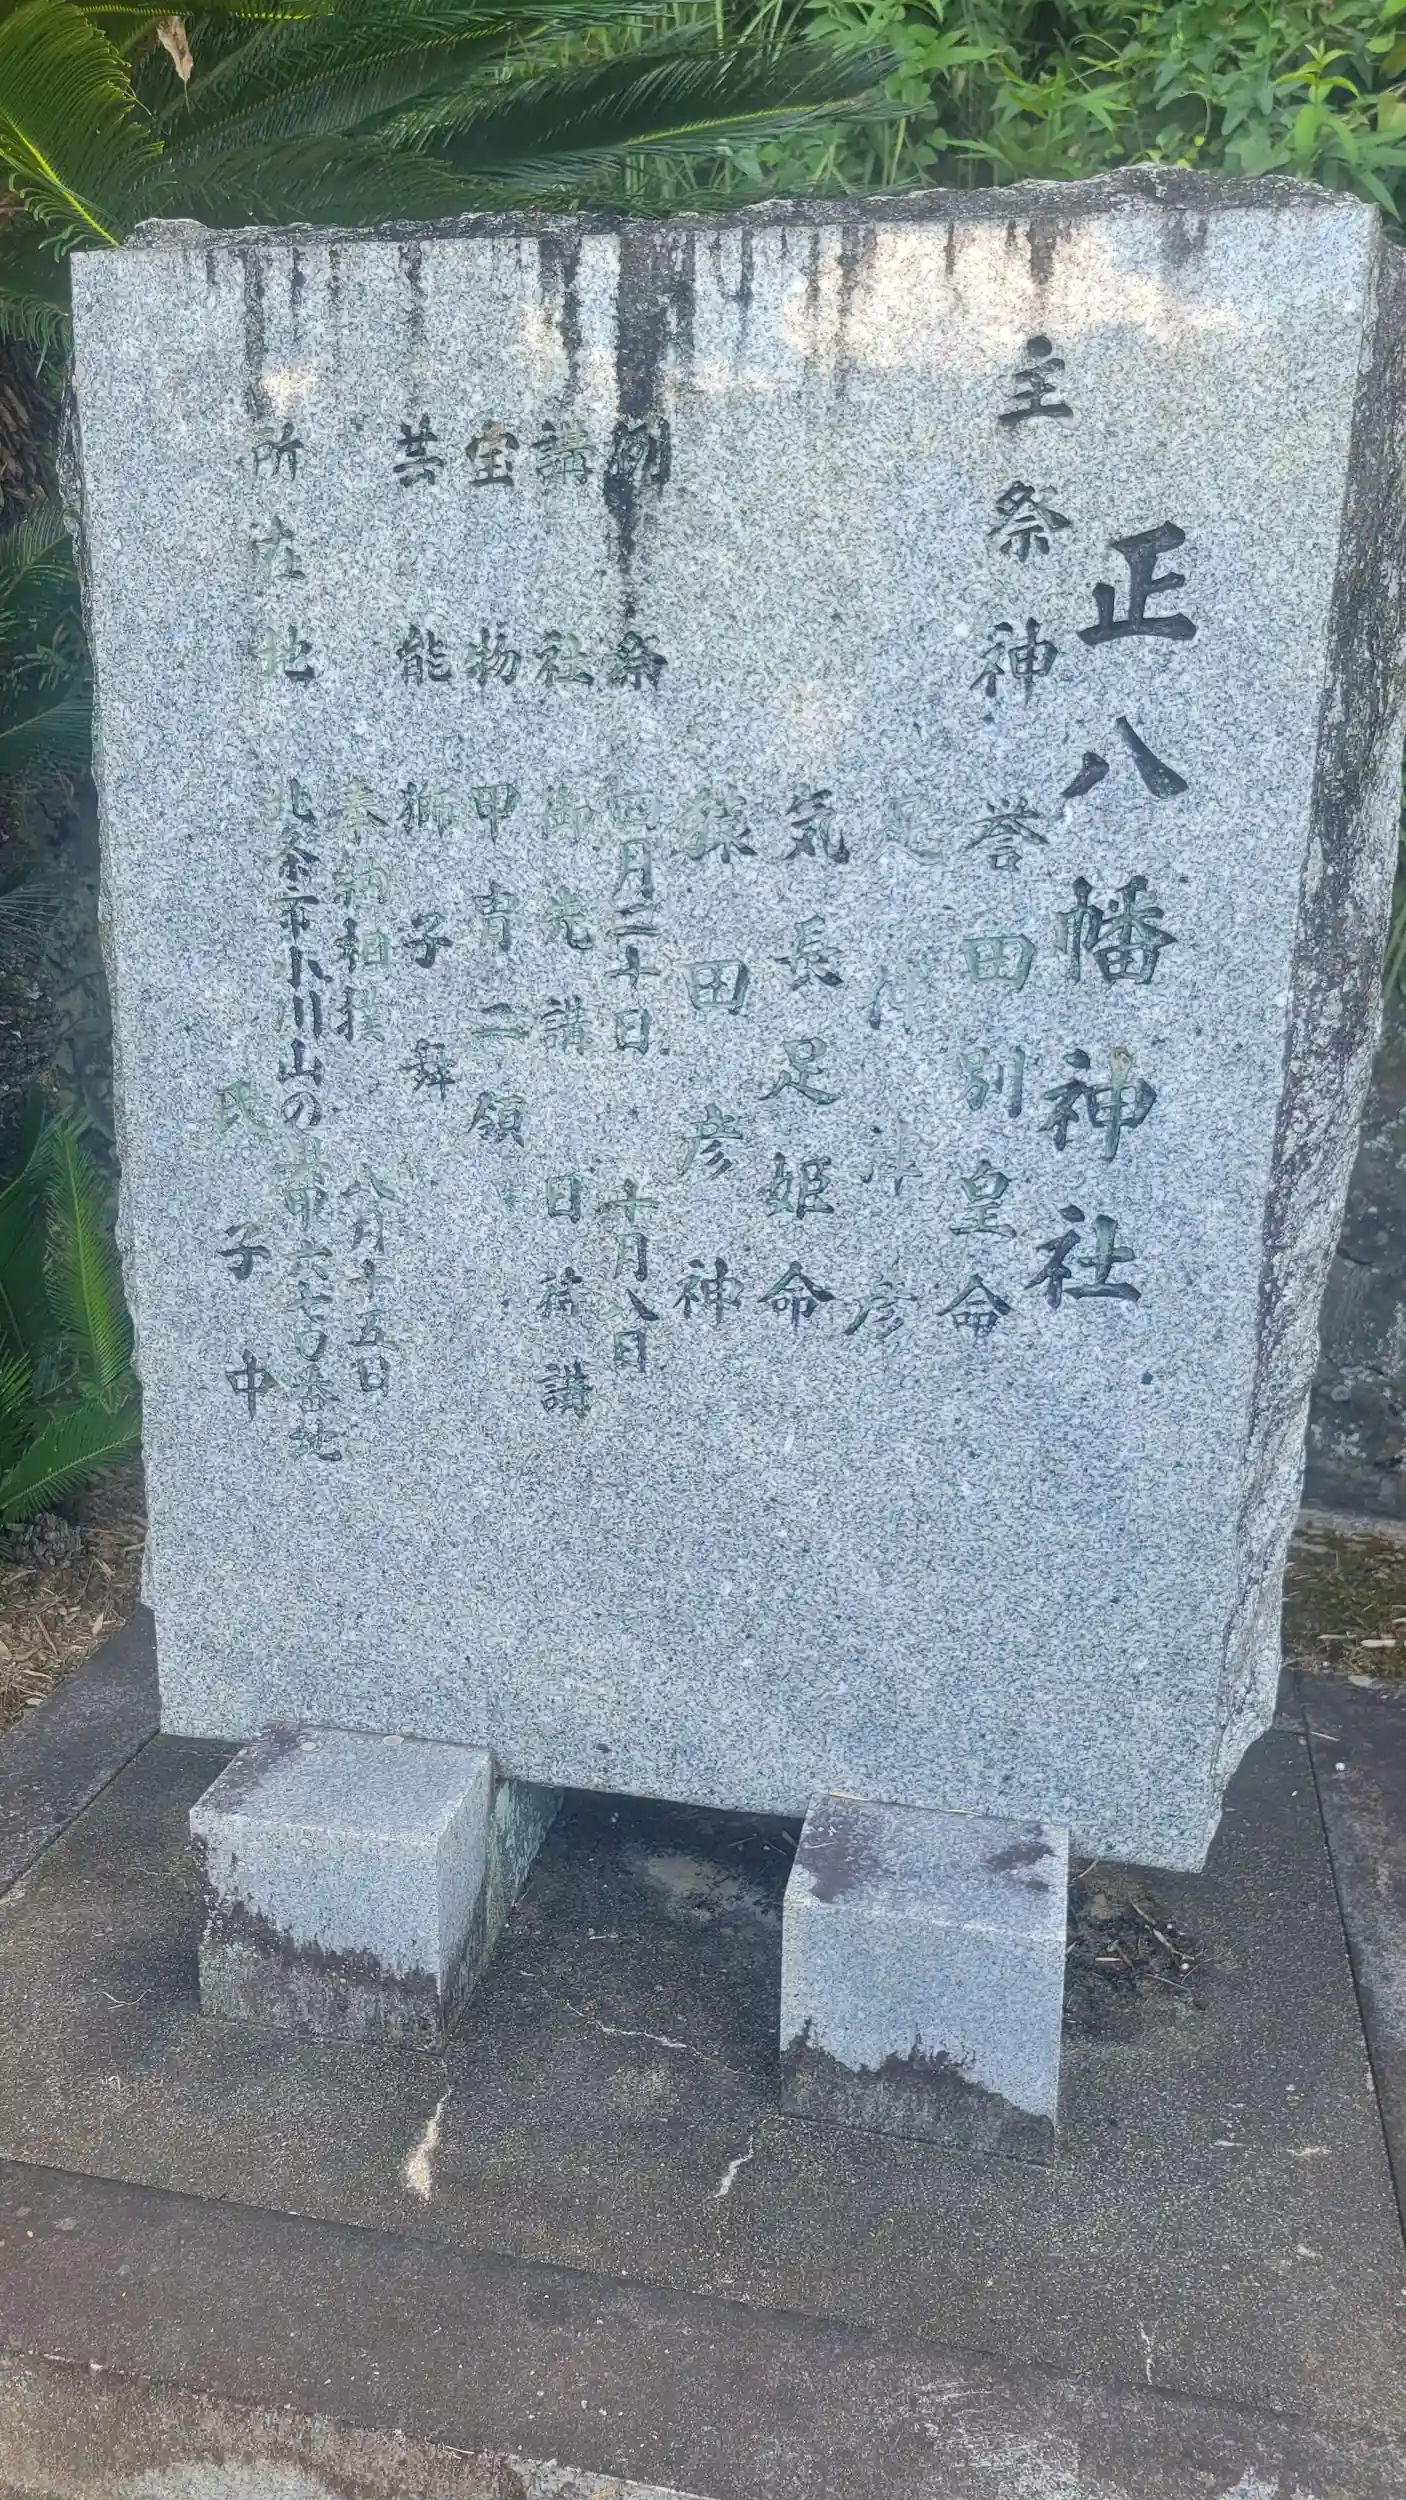 正八幡神社
主祭神 誉田別皇命
足仲津彦
気長足姫命
猿田彦神
例祭 四月二十日 十月八日
講社 御先講 日待講
宝物 甲青二領
芸能 獅子舞
奉納相撲 八月十五日
所在地 北条市小川山の 六七〇番地
氏子中